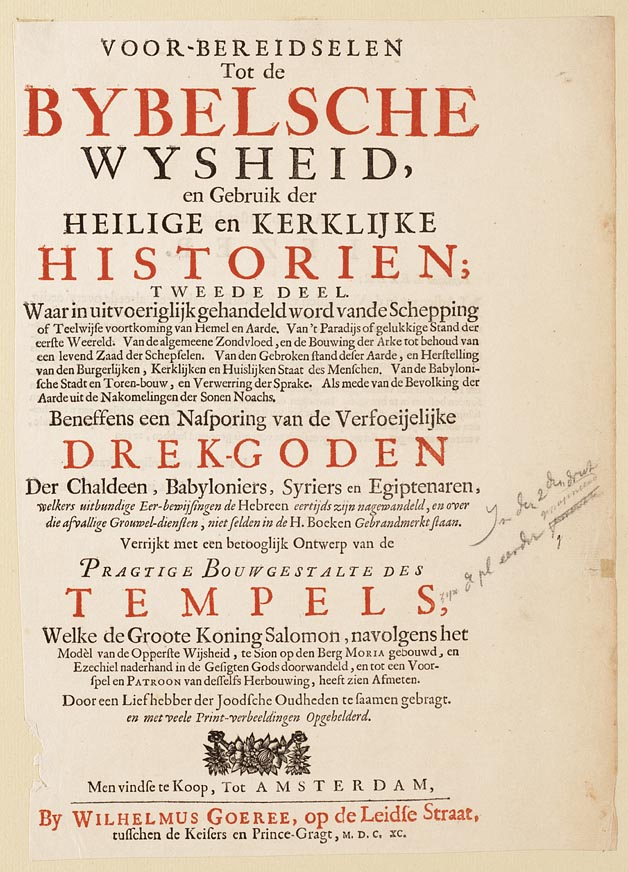 VOOR-BEREIDSELEN
Tot de
BYBELSCHE
WYSHEID,
en Gebruik der
HEILIGE en KERKLIJKE
HISTORIEN;
TWEEDE DEEL.
Waar in uitvoeriglijk gehandeld word vande Schepping
of Teelwijse voortkoming van Hemel en Aarde. Van 't Paradijs of gelukkige Stand der
eerste Weereld. Van de algemeene Zondvloed, en de Bouwing der Arke tot behoud van
een levend Zaad der Schepselen. Van den Gebroken stand deser Aarde, en Herstelling
van den Burgerlijken, Kerklijken en Huislijken Staat des Menschen. Van de Babyloni-
sche Stadt en Toren-bouw, en Verwerring der Sprake. Als mede van de Bevolking der
Aarde uit de Nakomelingen der Sonen Noachs.
Beneffens een Nasporing van de Verfoeijelijke
DREK-GODEN
Der Chaldeen, Babyloniers, Syriers en Egiptenaren,
welkers uitbundige Eer-bewijsingen de Hebreen eertijds zijn nagewandeld, en over
die afvallige Grouwel-diensten, niet selden in de H. Boeken Gebrandmerkt staan.
Verrijkt met een betooglijk Ontwerp van de
PRAGTIGE BOUWGESTALTE DES
TEMPELS,
Welke de Groote Koning Salomon, navolgens het
Modèl van de Opperste Wijsheid, te Sion op den Berg MORIA gebouwd, en
Ezechiel naderhand in de Gesigten Gods doorwandeld, en tot een Voor-
spel en PATROON van desselfs Herbouwing, heeft zien Afmeten.
Door een Liefhebber der Joodsche Oudheden te saamen gebragt.
en met veele Print-verbeeldingen Opgehelderd.
Men vindse te Koop, Tot AMSTERDAM,
By WILHELMUS GOEREE, op de Leidse Straat,
tusschen de Keisers en Prince-Gragt, M. D. C. XC.
In den 2den druk
zijn de pl eerder